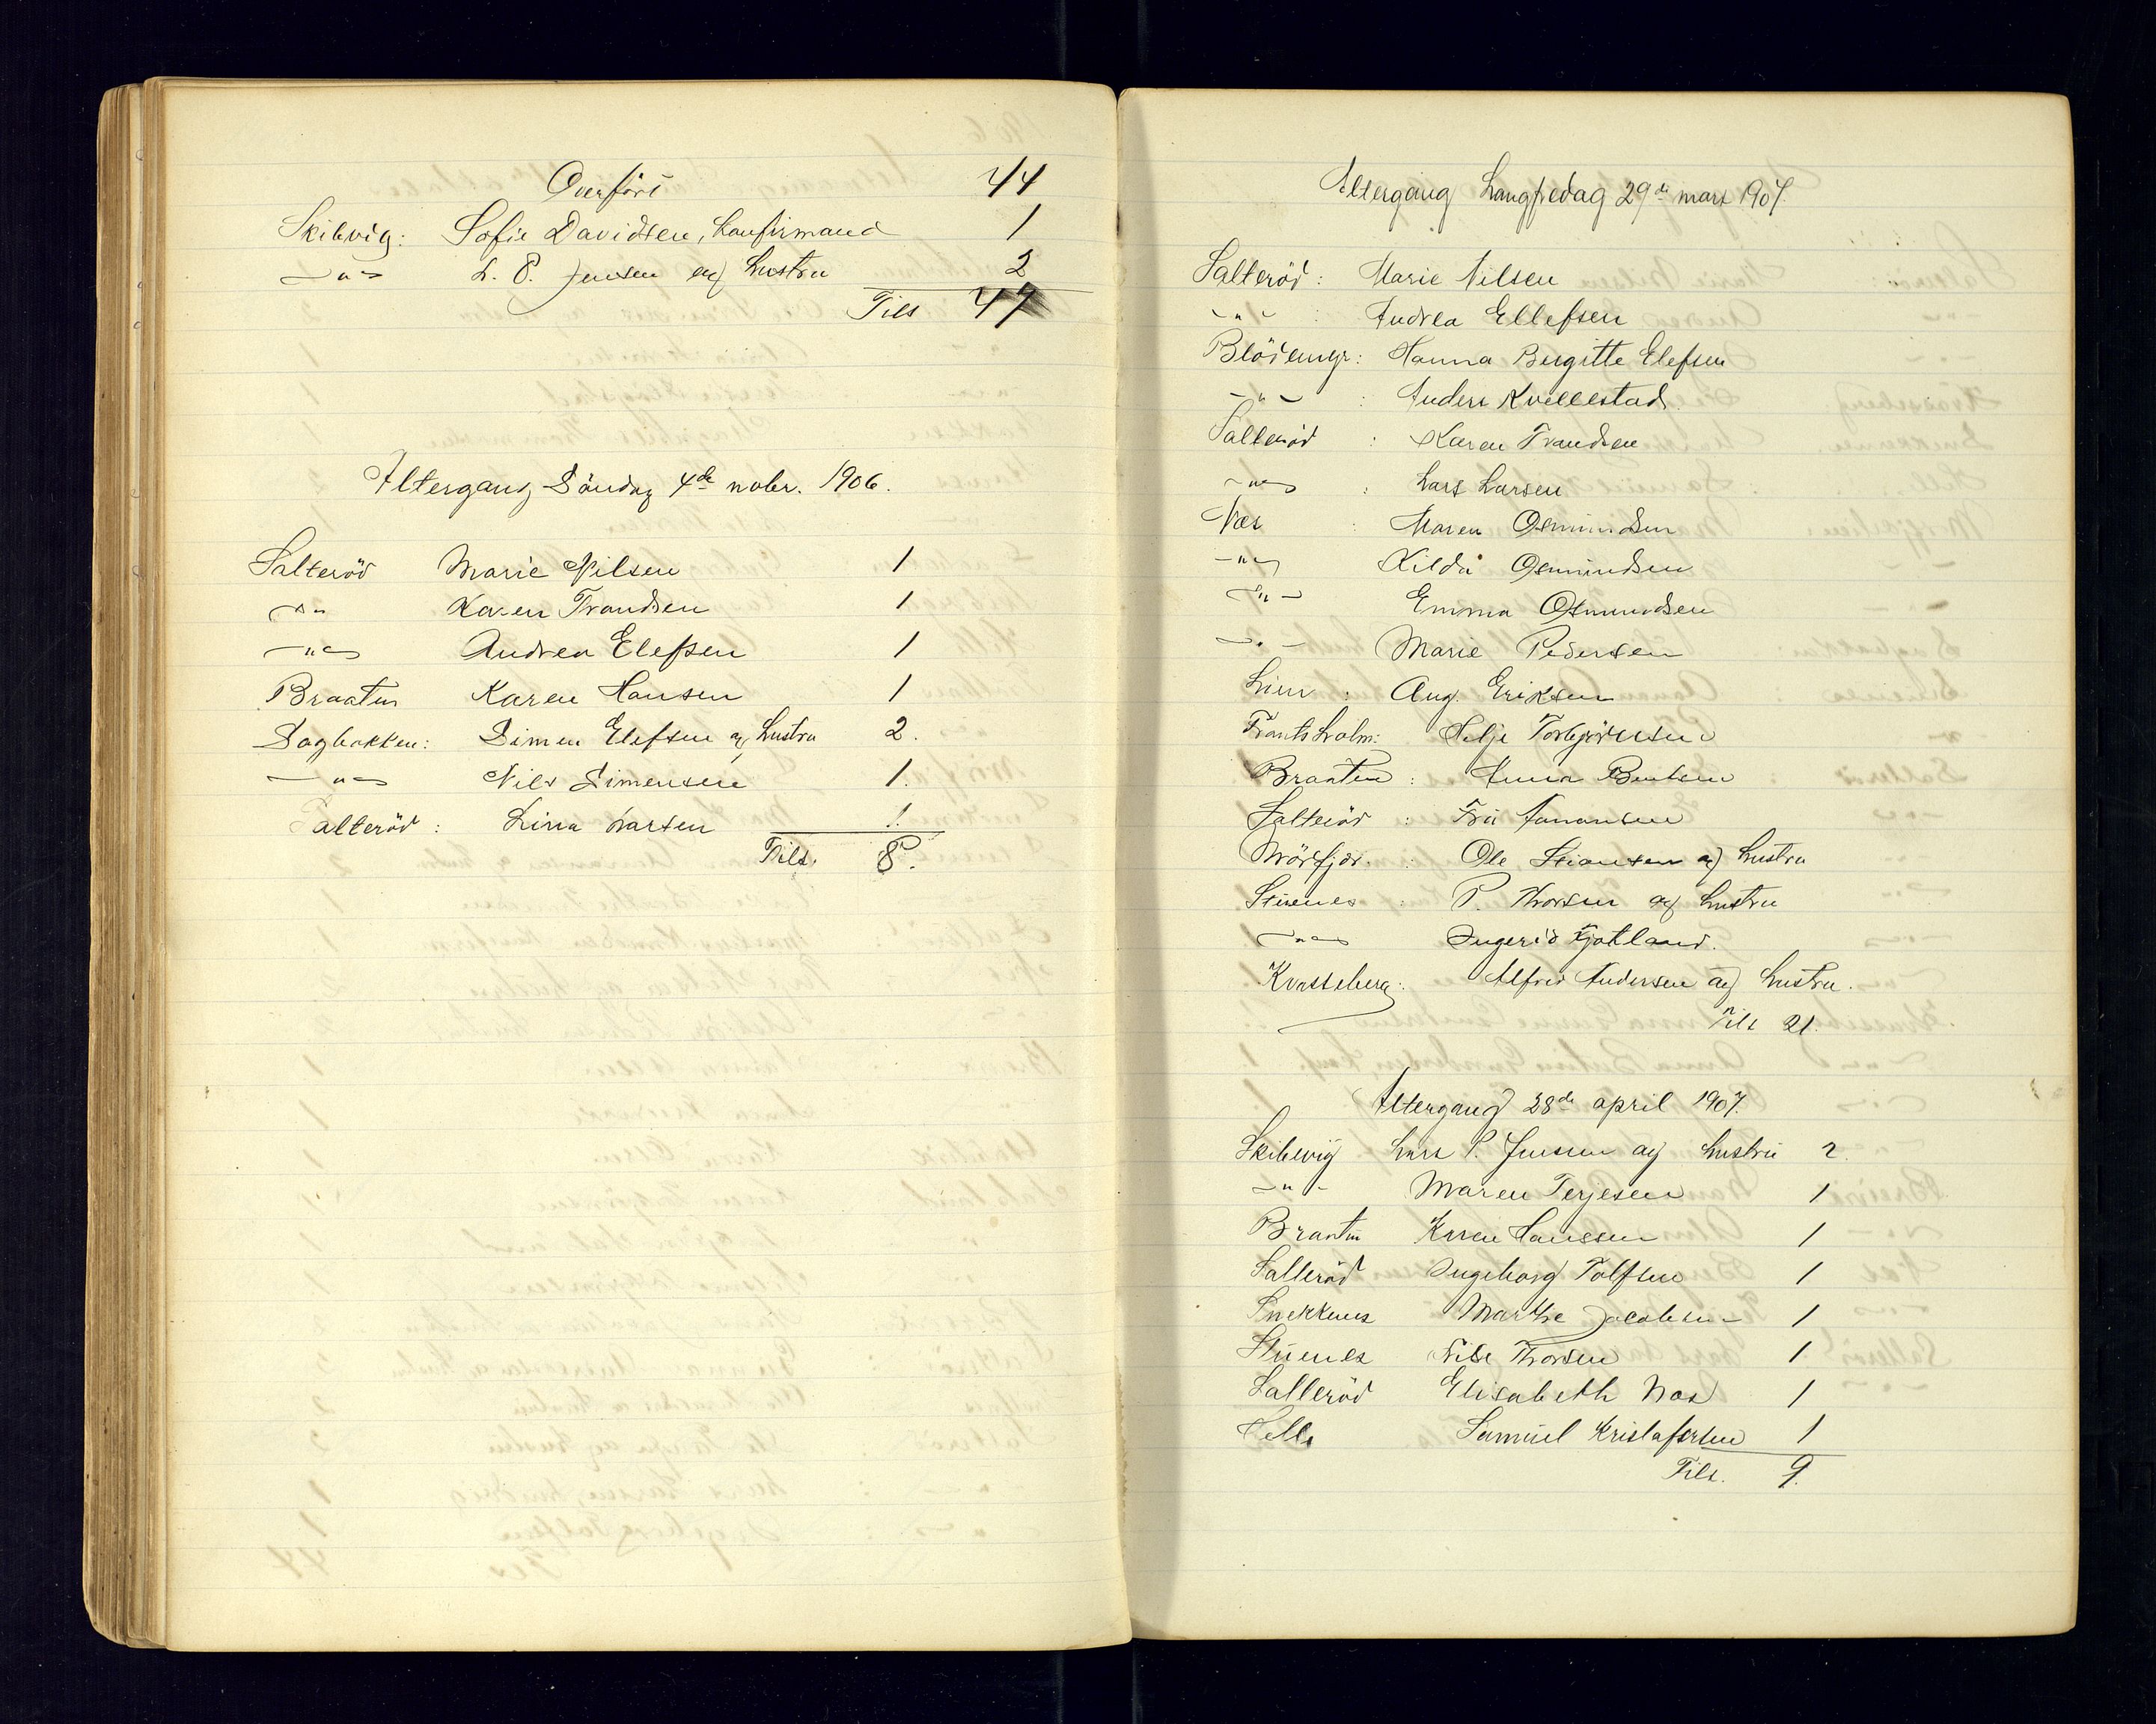 Overført 44
Skibvig: Sofie Davidsen, Konfirmand 1
—"— L. P. Jensen og Hustru 2
Tils 47
Altergang Söndag 4de nobr. 1906.
Salteröd Marie Nilsen 1
—"— Karen Trondsen 1
—"— Andrea Elefsen 1
Braaten Karen Hansen 1
Sagbakken: Simen Elefsen og Hustru 2.
—"— Nils Simensen 1.
Salteröd: Lina Larsen 1.
Tils. 8.
Altergang Langfredag 29de mars 1907.
Salteröd: Marie Nilsen
—"— : Andrea Ellefsen
Blödemyr: Hanna Birgitte Elefsen
—"— : Anders Kvellestad.
Salteröd : Karen Trandsen
—"— : Lars Larsen
Næs : Maren Osmundsen
—"— Hilda Osmundsen
—"— Emma Osmundsen
—"— Marie Pedersen
Lien : Aug. Eriksen
Frantsholm: Helje Torbjörnsen
Braaten : Anna Bentsen
Salteröd : Fru Aanonsen
Ole og Hustru
Stuenes : P. Thorsen og Hustru
—"— Ingerid
Krosseberg: Alfred Andersen og Hustru.
Tils 21.
Altergang 28de april 1907.
Skibvig Lars P. Jensen og Hustru 2.
—"— Maren Terjesen 1
Braaten Karen Hanssen 1
Salteröd Ingeborg Tolfsen 1
Snekkenes Marthe Jacobsen 1
Stuenes Nils Thorsen 1
Salteröd Elisabeth Næs 1
Helle Samuel Kristofersen 1
Tils. 9.